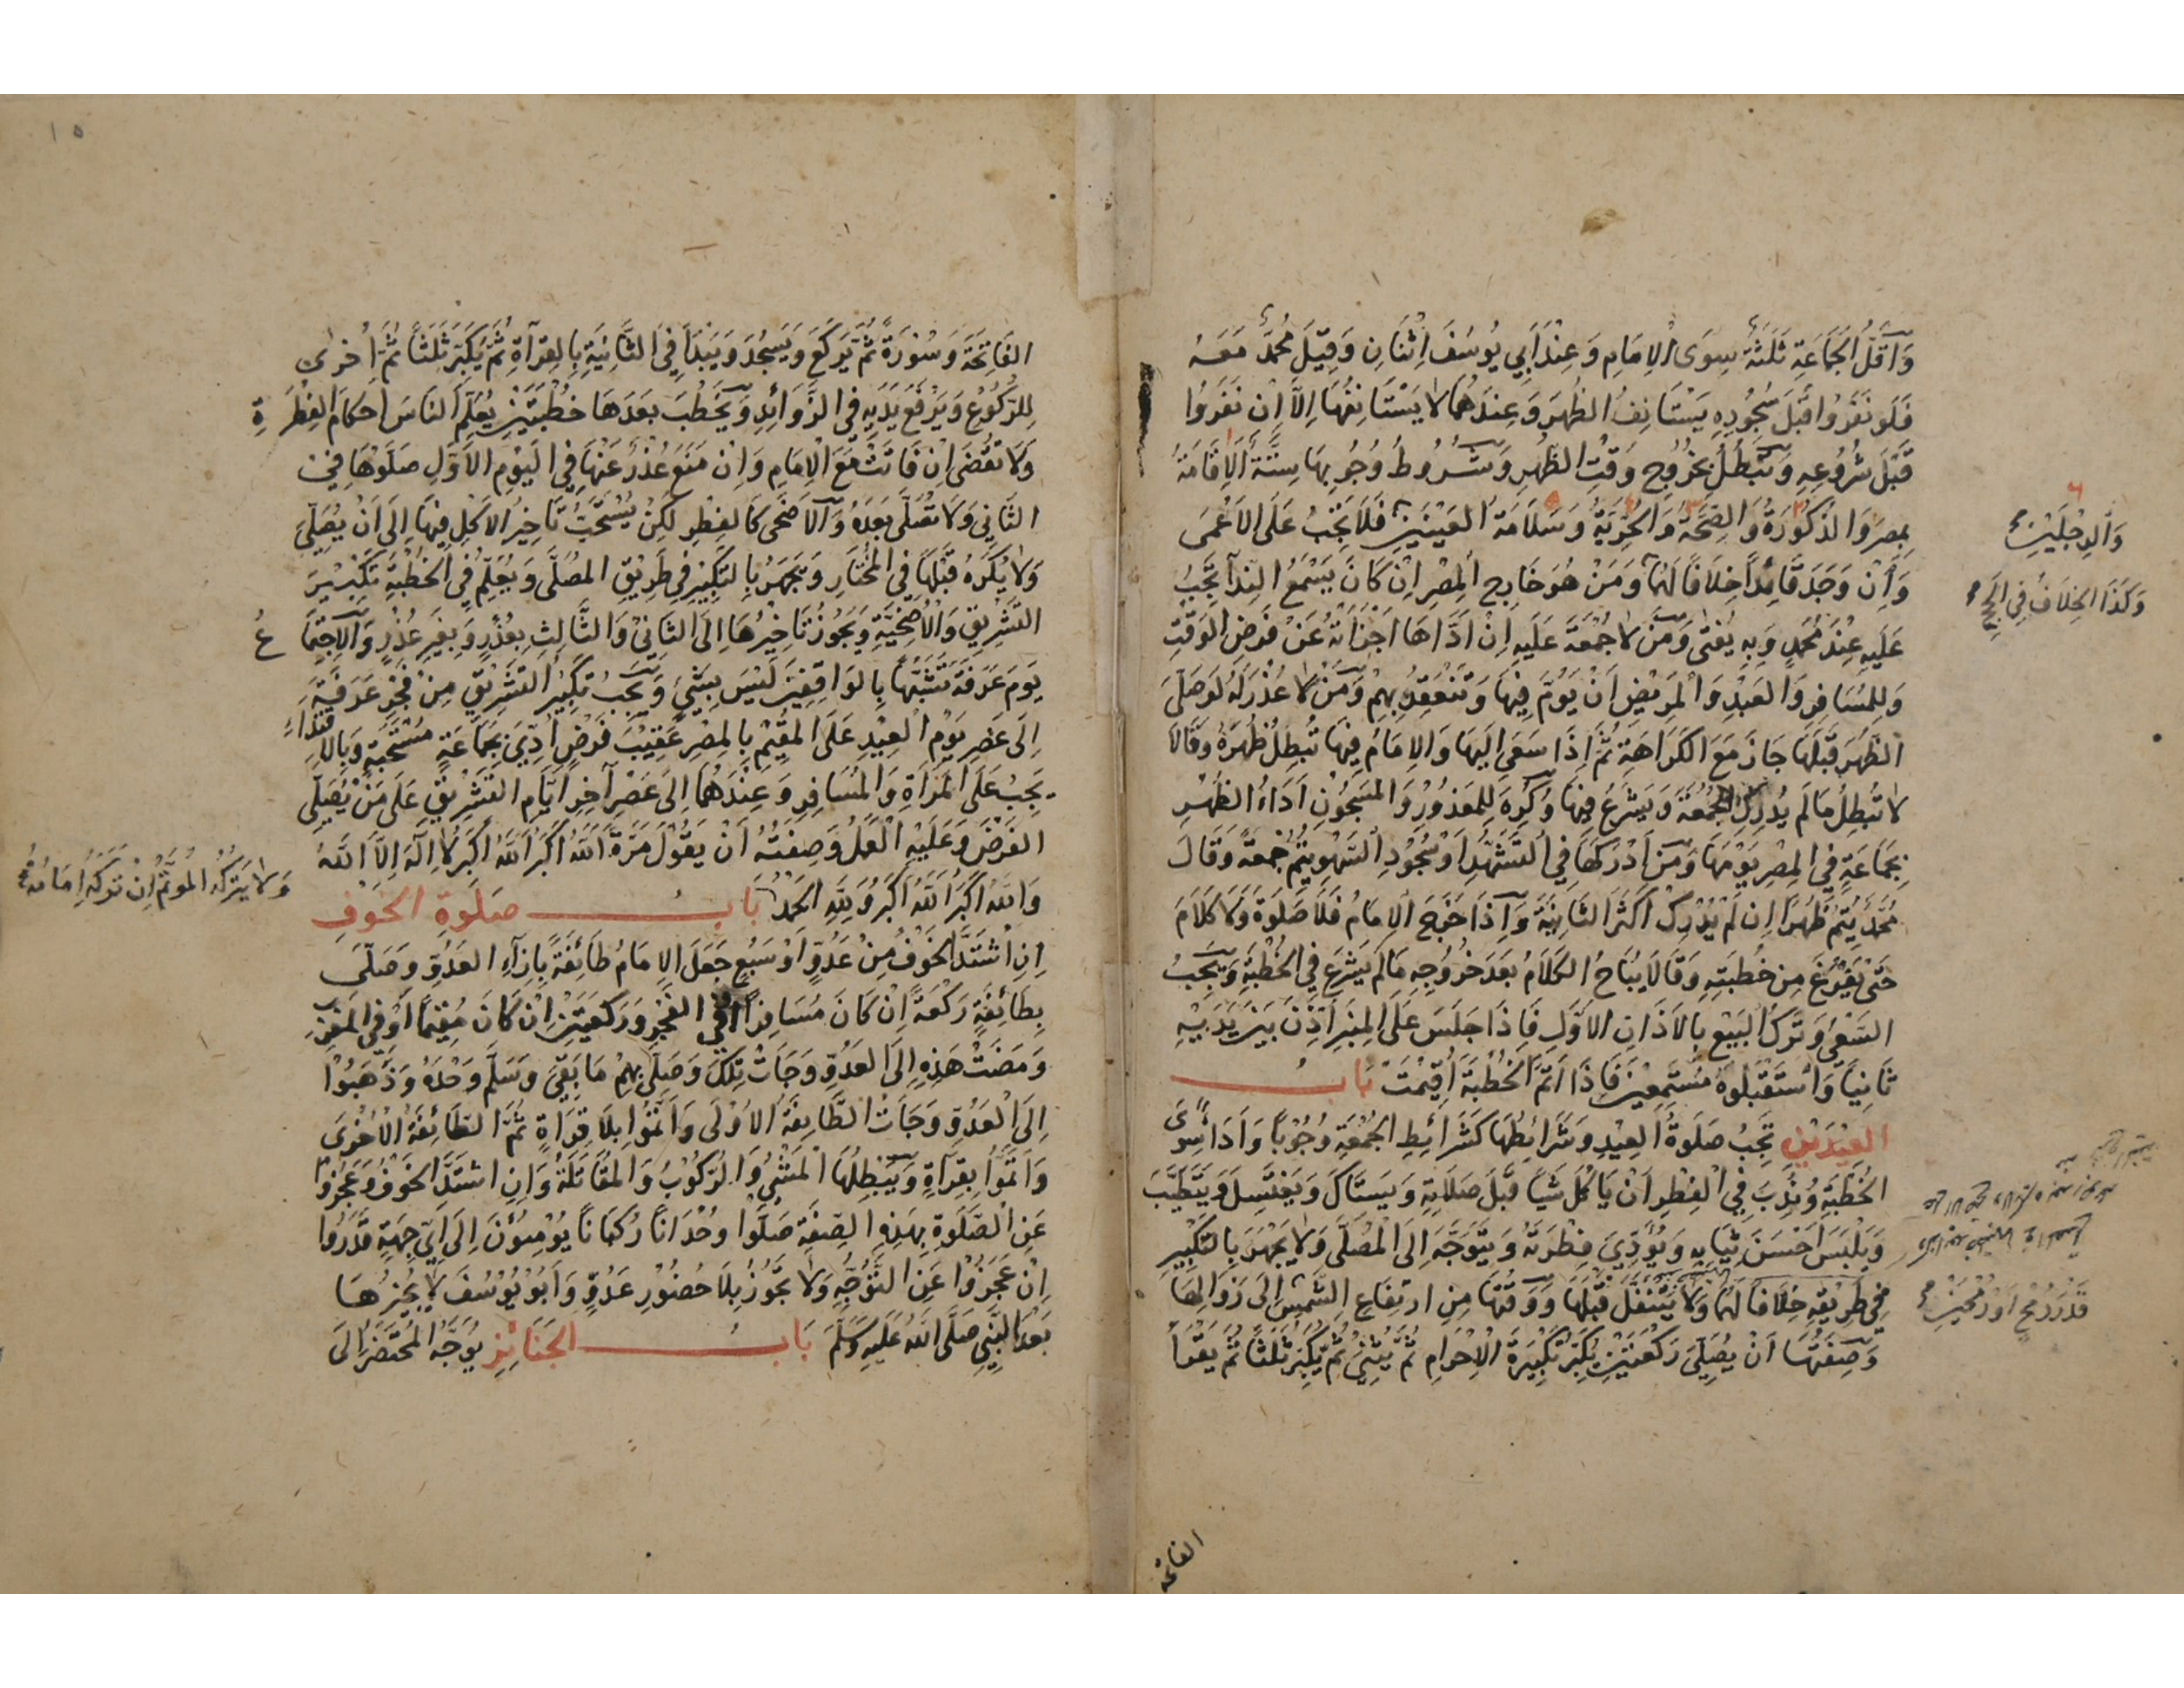 وَاَقَلُّ الجَمَاعَةِ ثَلَثَةٌ سِوَى الْاِمَامِ وَعِنْدَ اَبِي يُوسُفَ اِثْنَانِ وَقِيلَ مُحَمَّدٌ مَعَهُ
فَلَو نَفَرُوا قَبْلَ سُجُودِهِ يَسْتَانِفُ الظُهرَ وَعِندَهُمَا لا يَسْتَانِفُهَا اِلاَّ اِنْ نَفَرُوا
قَبْلَ شُرُوعِهِ وَتَبْطُلُ بِخُرُوجِ وَقْتِ الظُهرِ وَشُرُوطُ وُجُوبِهَا سِتَّةٌ الاِقَامَةُ
بِمِصرَ وَالذُكُورَةُ وَالصِّحَّةُ وَالحُرِّيَةُ وَسَلَامَةُ العَيْنَيْنِ فَلاَ تَجِبُ عَلَى الاَعْمَى
وَاِنْ وَجَدَ قَائِدًا خِلَافًا لَهُمَا وَمَنْ هُوَ خَارِجِ المِصْرِ اِنْ كَانَ يَسْمَعُ النِدَآءَ تَجِبُ
عَلَيهِ عِنْدَ مُحَمَّدٍ وَبِهِ يُفتَى وَمَنْ لَا جُمْعَةَ عَلَيهِ اِنْ اَدَّاهَا اَجْزَاَتْهُ عَنْ فَرضِ الوَقْتِ
وَلِلمُسَافِرِ وَالعَبْدِ وَالْمَرِيضِ اَنْ يَؤُمَّ فِيهَا وَتَنْعَقِدُ بِهِمْ وَمَنْ لا عُذْرَ لَهُ لَو صَلَّى
الظُهرَ قَبْلَهَا جَازَ مَعَ الكَرَاهَةِ ثُمَّ اِذَا سَعَى اِلَيهَا وَالاِمَامُ فِيهَا تُبطِلُ ظُهرَهُ وَقَالاَ
لا تُبطِلُ مَا لَم يُدرِكِ الجُمُعَةَ وَيَشرَعُ فِيهَا وَكُرِهَ لِلمَعذُورِ وَالمَسجُونِ اَدَاءُ الظُهْرِ
بِجَمَاعَةٍ فِي المِصْرِ يَوْمَهَا وَمَنْ اَدْرَكَهَا فِي التَّشَهُّدِ اَوْ سُجُودِ السَّهْوِ يُتِمُّ جُمعَةً وَقَالَ
مُحَمَّدٌ يُتِمُّ ظُهرًا اِن لَمْ يُدْرِكْ اَكْثَرَ الثَانِيَةِ وَاِذَا خَرَجَ الاِمَامُ فَلَا صَلَوةَ وَلا كَلَامَ
حَتَّى يَفْرُغَ مِن خُطبَتِهِ وَقَالَا يُبَاحُ الكَلَامُ بَعدَ خُرُوجِهِ مَا لَم يَشرَع فِي الخُطْبَةِ وَيَجِبُ
السَعْيُ وَتَركُ البَيْعِ بِالاَذَانِ الاَوَّلِ فَاِذَا جَلَسَ عَلَى المِنبَرِ اُذِّنَ بَينَ يَدَيْهِ
ثَانِيًا وَاسْتَقْبَلُوهُ مُسْتَمِعِينَ فَاِذَا اَتَمَّ الخُطْبَةَ اُقِيمَتْ بَابُ
العِيْدَيْنِ تَجِبُ صَلَوةُ العِيْدِ وَشَرَائِطُهَا كَشَرَائِطِ الجُمْعَةِ وُجُوبًا وَاَدَاءً سِوَى
الخُطْبَةِ وَنُدِبَ فِي الْفِطْرِ اَنْ يَاكُلَ شَيْاً قَبْلَ صَلَاتِهِ وَيَستَاكَ وَيَغتَسِلَ وَيَتَطَيَّبَ
وَيَلْبَسَ اَحْسَنَ ثِيَابِهِ وَيُؤَدِّيَ فِطْرَتَهُ وَيَتَوَجَّهَ اِلَى الْمُصَلَّى وَلا يَجْهَرَ بِالتَكْبِيرِ
فِي طَرِيْقِهِ خِلَافًا لَهُمَا وَلا يَتَنَفَّلُ قَبْلَهَا وَوَقْتُهَا مِنِ ارتِفَاعِ الشَّمسِ اِلَى زَوَالِهَا
وَصِفَتُهَا اَنْ يُصَلِّيَ رَكْعَتَيْنِ يُكَبِّرُ تَكْبِيْرَةَ الْاِحْرَامِ ثُمَّ يُثْنِي ثُمَّ يُكَبِّرُ ثَلَثًا ثُمَّ يَقْرَأُ
وَالرِجْلَيْنِ
وَكَذَا الخِلَافُ فِي الحَجِّ
قَدْرَ رُمْحٍ اَوْ رُمْحَيْنِ
الفاتحة
١٥
الفَاتِحَةَ وَسُورَةً ثُمَّ يَركَعُ وَيَسجُدُ وَيَبْدَأُ فِي الثَّانِيَةِ بِالقِرَآةِ ثُمَّ يُكَبِّرُ ثَلَثًا ثُمَّ اُخرَى
لِلرُّكُوعِ وَيَرْفَعُ يَدَيهِ فِي الزَّوَائِدِ وَيَخْطُبُ بَعدَهَا خُطْبَتَيْنِ يُعَلِّمُ النَاسَ اَحكَامَ الفِطْرَةِ
وَلَا تُقْضَى اِنْ فَاتَتْ مَعَ الْاِمَامِ وَاِنْ مَنَعَ عُذْرٌ عَنْهَا فِي اليَوْمِ الاَوَّلِ صَلَوْهَا فِي
الثَانِي وَلَا تُصَلَّى بَعْدَهُ وَالْاَضْحَى كَالفِطرِ لكِنْ يُسْتَحَبُّ تَاخِيْرُ الاَكْلِ فِيْهَا اِلَى اَنْ يُصَلِّيَ
وَلا يُكرَهُ قَبْلَهَا فِي المُخْتَارِ وَيَجهَرُ بِالتَكْبِيرِ فِي طَرِيْقِ المُصَلَّى وَيُعَلِّمُ فِي الخُطْبَةِ تَكْبِيْرَ
التَشْرِيْقِ وَالْاُضْحِيَّةِ وَيَجُوزُ تَاخِيْرُهَا اِلَى الثَانِيْ وَالثَّالِثِ بِعُذْرٍ وَبِغَيرِ عُذْرٍ وَالاِجتِمَاعُ
يَومَ عَرَفَةَ تَشَبُّهًا بِالوَاقِفِيْنَ لَيْسَ بِشَيْءٍ وَيَجِبُ تَكْبِيْرُ التَشْرِيْقِ مِنْ فَجْرِ عَرَفَةَ
اِلَى عَصْرِ يَوْمِ الْعِيْدِ عَلَى المُقِيْمِ بِالمِصْرِ عَقِيْبَ فَرْضٍ اُدِّيَ بِجَمَاعَةٍ مُسْتَحَبَّةٍ وَبِالاِقْتِدَاءِ
يَجِبُ عَلَى المَرْاَةِ وَالمُسَافِرِ وَعِنْدَهُمَا اِلَى عَصْرِ آخِرِ اَيَّامِ التَشْرِيْقِ عَلَى مَنْ يُصَلِّي
الفَرْضَ وَعَلَيْهِ الْعَمَلُ وَصِفَتُهُ اَنْ يَقُوْلَ مَرَّةً اَللّهُ اَكْبَرُ اَللّهُ اَكْبَرُ لا اِلهَ اِلاَّ اللّهُ
وَاللّهُ اَكْبَرُ اَللّهُ اَكْبَرُ وَلِلّهِ الحَمْدُ بَابُ صَلَوةِ الخَوْفِ
اِنِ اشْتَدَّ الخَوْفُ مِنْ عَدُوٍّ اَوْ سَبُعٍ جَعَلَ الاِمَامُ طَائِفَةً بِاِزَآءِ العَدُوِّ وَصَلَّى
بِطَائِفَةٍ رَكْعَةً اِنْ كَانَ مُسَافِرًا اَوْ فِي الفَجْرِ وَرَكْعَتَيْنِ اِنْ كَانَ مُقِيْمًا اَوْ فِي المَغْرِبِ
وَمَضَتْ هَذِهِ اِلَى العَدُوِّ وَجَاءَتْ تِلْكَ وَصَلَّى بِهِمْ مَا بَقِيَ وَسَلَّمَ وَحْدَهُ وَذَهَبُوْا
اِلَى الْعَدُوِّ وَجَاءَتْ الطَائِفَةُ الاُوْلَى وَاَتَمُّوا بِلَا قِرَاءَةٍ ثُمَّ الطَائِفَةُ الْاُخْرَى
وَاَتَمُّوْا بِقِرَآةٍ وَيُبْطِلُهَا الْمَشْيُ وَالرُّكُوْبُ وَالمُقَاتَلَةُ وَاِنِ اشتَدَّ الخَوْفُ وَعَجَزُوْا
عَنِ الصَّلَوةِ بِهَذِهِ الصِفَةِ صَلَّوْا وُحْدَانًا رُكبَانًا يُوْمِئُوْنَ اِلَى اَيِّ جِهَةٍ قَدَرُوا
اِنْ عَجَزُوْا عَنِ التَّوَجُّهِ وَلا تَجُوزُ بِلاَ حُضُوْرِ عَدُوٍّ وَاَبُوْ يُوْسُفَ لا يُجِيْزُهَا
بَعْدَ النَّبِيِّ صَلَّى اللّهُ عَلَيهِ وَسَلَّمَ بَابُ الجَنَائِزِ يُوَجَّهُ المُحْتَضَرُ اِلَى
وَلا يَتْرُكُهُ المُؤتَمُّ اِنْ تَرَكَهُ اِمَامُهُ